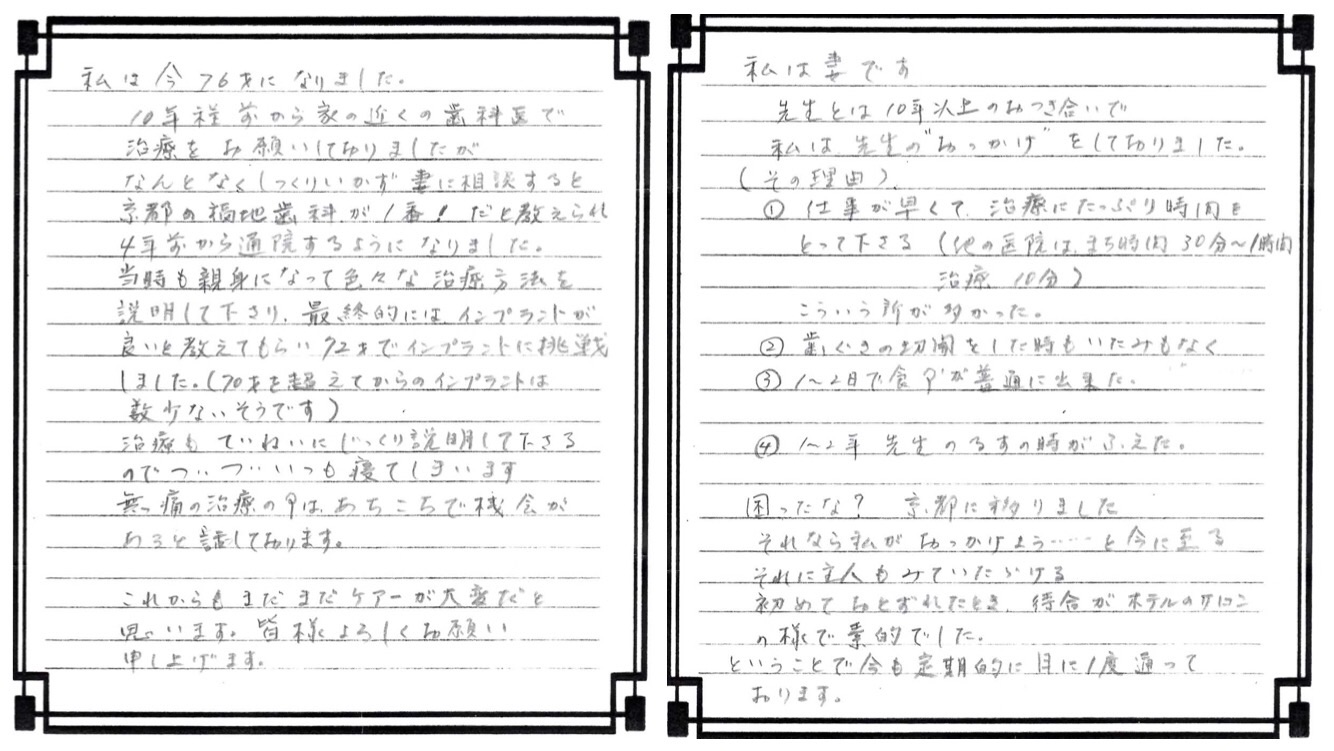 私は今76才になりました。
10年程前から家の近くの歯科医で
治療をお願いしておりましたが
なんとなくしっくりいかず妻に相談すると
京都の福地歯科が1番！だと教えられ
4年前から通院するようになりました。
当時も親身になって色々な治療方法を
説明して下さり、最終的には、インプラントが
良いと教えてもらい72才でインプラントに挑戦
しました。(70才を超えてからのインプラントは
数少ないそうです)
治療もていねいにじっくり説明して下さる
のでついついいつも寝てしまいます
無痛の治療の中は、あちこちで機会が
あると話しております。
これからもまだまだケアーが大変だと
思います。皆様よろしくお願い
申し上げます。
私は妻です
先生とは10年以上のおつき合いで
私は先生の"おっかけ"をしておりました。
(その理由)、
① 仕事が早くて、治療にたっぷり時間を
とって下さる (他の医院は、まち時間30分〜1時間
治療 10分)
こういう所が多かった。
② 歯ぐきの切開をした時もいたみもなく
③ 1〜2日で食事が普通に出来た。
④ 1〜2年 先生のるすの時がふえた。
困ったな？ 京都に移りました
それなら私がおっかけよう……と今に至る
それに主人もみていただける
初めておとずれたとき、待合がホテルのサロン
の様で素的でした。
ということで今も定期的に月に1度通って
おります。